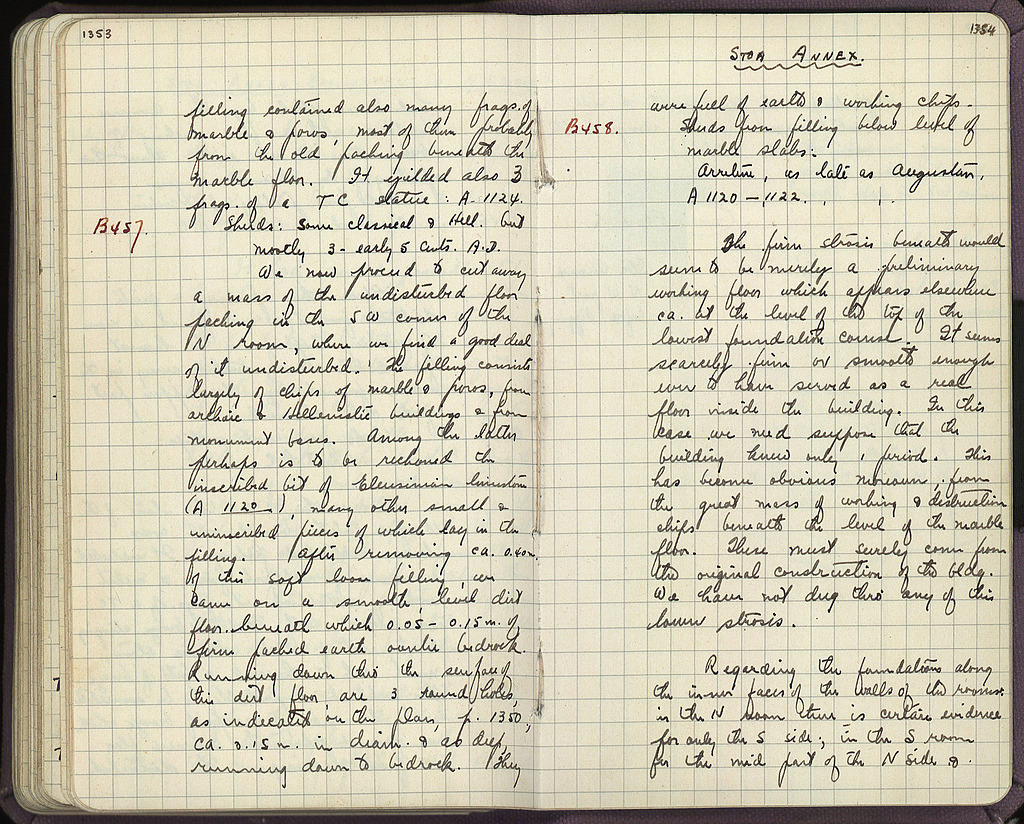 1353
filling contained also many frags. of
marble & poros, most of them probably
from the old packing beneath the
marble floor. It yielded also 3
frags. of a TC statue: A. 1124.
B457.
Sherds: some classical & Hell. but
mostly 3 - early 5 Cents. A.D.
We now proceed to cut away
a mass of the undisturbed floor
packing in the SW corner of the
N room, where we find a good deal
of it undisturbed. The filling consists
largely of chips of marble & poros, from
archaic & Hellenistic buildings & from
monument bases. Among the latter
perhaps is to be reckoned the
inscribed bit of Eleusinian limestone
(A 1120), many other small &
uninscribed pieces of which lay in the
filling. After removing ca. 0.40 m.
of this soft loose filling, we
came on a smooth, level dirt
floor beneath which 0.05 - 0.15 m. of
firm packed earth overlie bedrock.
Running down thro the surface of
this dirt floor are 3 round holes,
as indicated on the plan, p. 1350,
ca. 0.15 m. in diam. & as deep,
running down to bedrock. They
1354
STOA ANNEX.
were full of earth & working chips.
B458.
Sherds from filling below level of
marble slabs:
Arretine, as late as Augustan.
A 1120 - 1122.
The firm strosis beneath would
seem to be merely a preliminary
working floor which appears elsewhere
ca. at the level of the top of the
lowest foundation course. It seems
scarcely firm or smooth enough
ever to have served as a real
floor inside the building. In this
case we need suppose that the
building knew only 1 period. This
has become obvious moreover, from
the great mass of working & destruction
chips beneath the level of the marble
floor. These must surely come from
the original construction of the bldg.
We have not dug thro any of this
lower strosis.
Regarding the foundations along
the inner faces of the walls of the rooms:
in the N room there is certain evidence
for only the S side; in the S room
for the mid part of the N side &